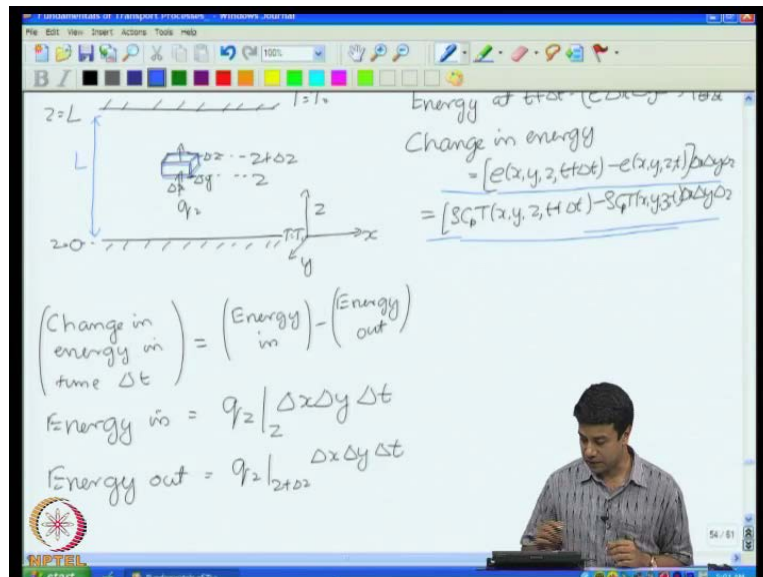 Fundamentals of Transport Processes_ - Windows Journal
File Edit View Insert Actions Tools Help
100%
B I
z=L
L
Δz --z+Δz
Δx Δy --z
q_z
z=0
z
x
y
Change in energy
= [e(x,y,z,t+Δt) - e(x,y,z,t)]ΔxΔyΔz
= [ρC_pT(x,y,z,t+Δt) - ρC_pT(x,y,z,t)]ΔxΔyΔz
(Change in energy in time Δt) = (Energy in) - (Energy out)
Energy in = q_z|_z ΔxΔyΔt
Energy out = q_z|_{z+Δz} ΔxΔyΔt
NPTEL
54 / 61
start